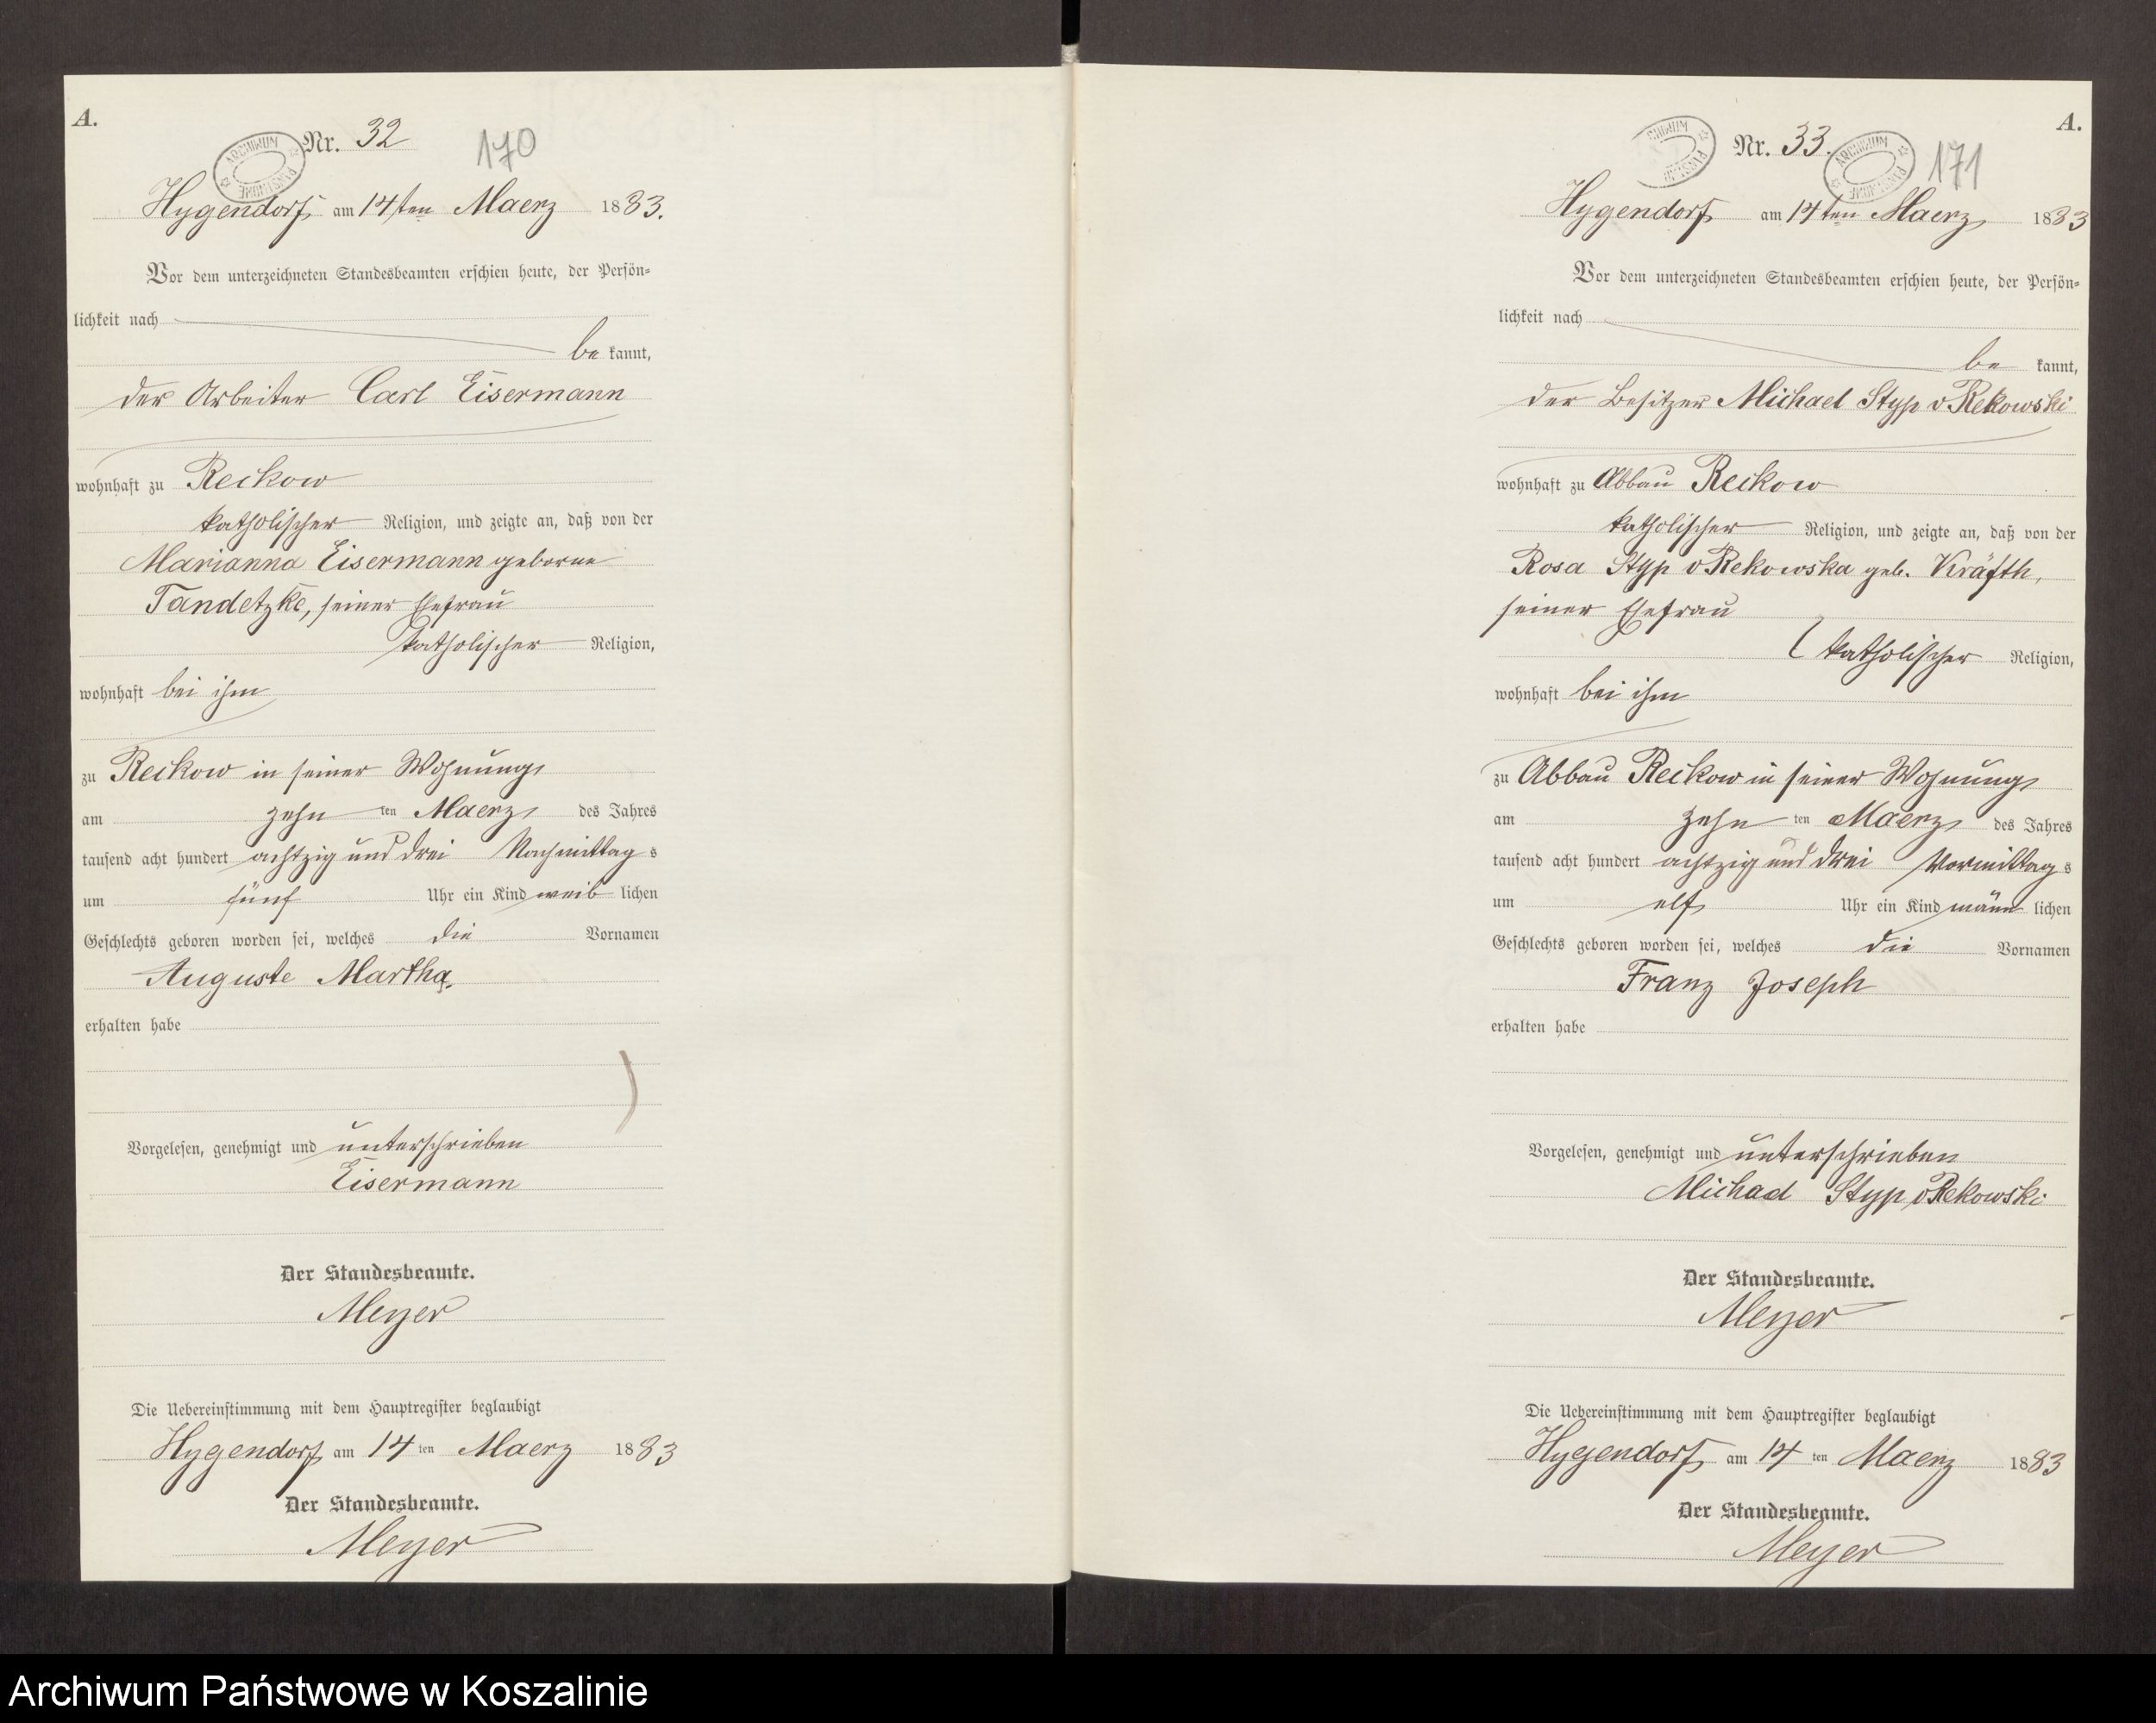 A.
Nr. 32
170
ARCHIWUM PAŃSTWOWE
Hygendorf, am 14ten Maerz 1883.
Vor dem unterzeichneten Standesbeamten erschien heute, der Persön-
lichkeit nach
be kannt,
der Arbeiter Carl Eisermann
wohnhaft zu Reckow
katholischer Religion, und zeigte an, daß von der
Marianna Eisermann geborne
Tandetzke, seiner Ehefrau
katholischer Religion,
wohnhaft bei ihm
zu Reckow in seiner Wohnung,
am zehn ten Maerz des Jahres
tausend acht hundert achtzig und drei Nachmittag s
um fünf Uhr ein Kind weib lichen
Geschlechts geboren worden sei, welches die Vornamen
Auguste Martha.
erhalten habe
Vorgelesen, genehmigt und unterschrieben
Eisermann
Der Standesbeamte.
Meyer
Die Uebereinstimmung mit dem Hauptregister beglaubigt
Hygendorf, am 14 ten Maerz 1883
Der Standesbeamte.
Meyer
A.
Nr. 33.
171
ARCHIWUM PAŃSTWOWE
ARCHIWUM PAŃSTWOWE
Hygendorf am 14ten Maerz 1883
Vor dem unterzeichneten Standesbeamten erschien heute, der Persön-
lichkeit nach
be kannt,
der Besitzer Michael Styp v Rekowski
wohnhaft zu Abbau Reckow
katholischer Religion, und zeigte an, daß von der
Rosa Styp v Rekowska geb. Kräfth,
seiner Ehefrau
katholischer Religion,
wohnhaft bei ihm
zu Abbau Reckow in seiner Wohnung,
am zehn ten Maerz des Jahres
tausend acht hundert achtzig und drei Vormittag s
um elf Uhr ein Kind männ lichen
Geschlechts geboren worden sei, welches die Vornamen
Franz Joseph
erhalten habe
Vorgelesen, genehmigt und unterschrieben
Michael Styp v Rekowski
Der Standesbeamte.
Meyer
Die Uebereinstimmung mit dem Hauptregister beglaubigt
Hygendorf, am 14 ten Maerz 1883
Der Standesbeamte.
Meyer
Archiwum Państwowe w Koszalinie